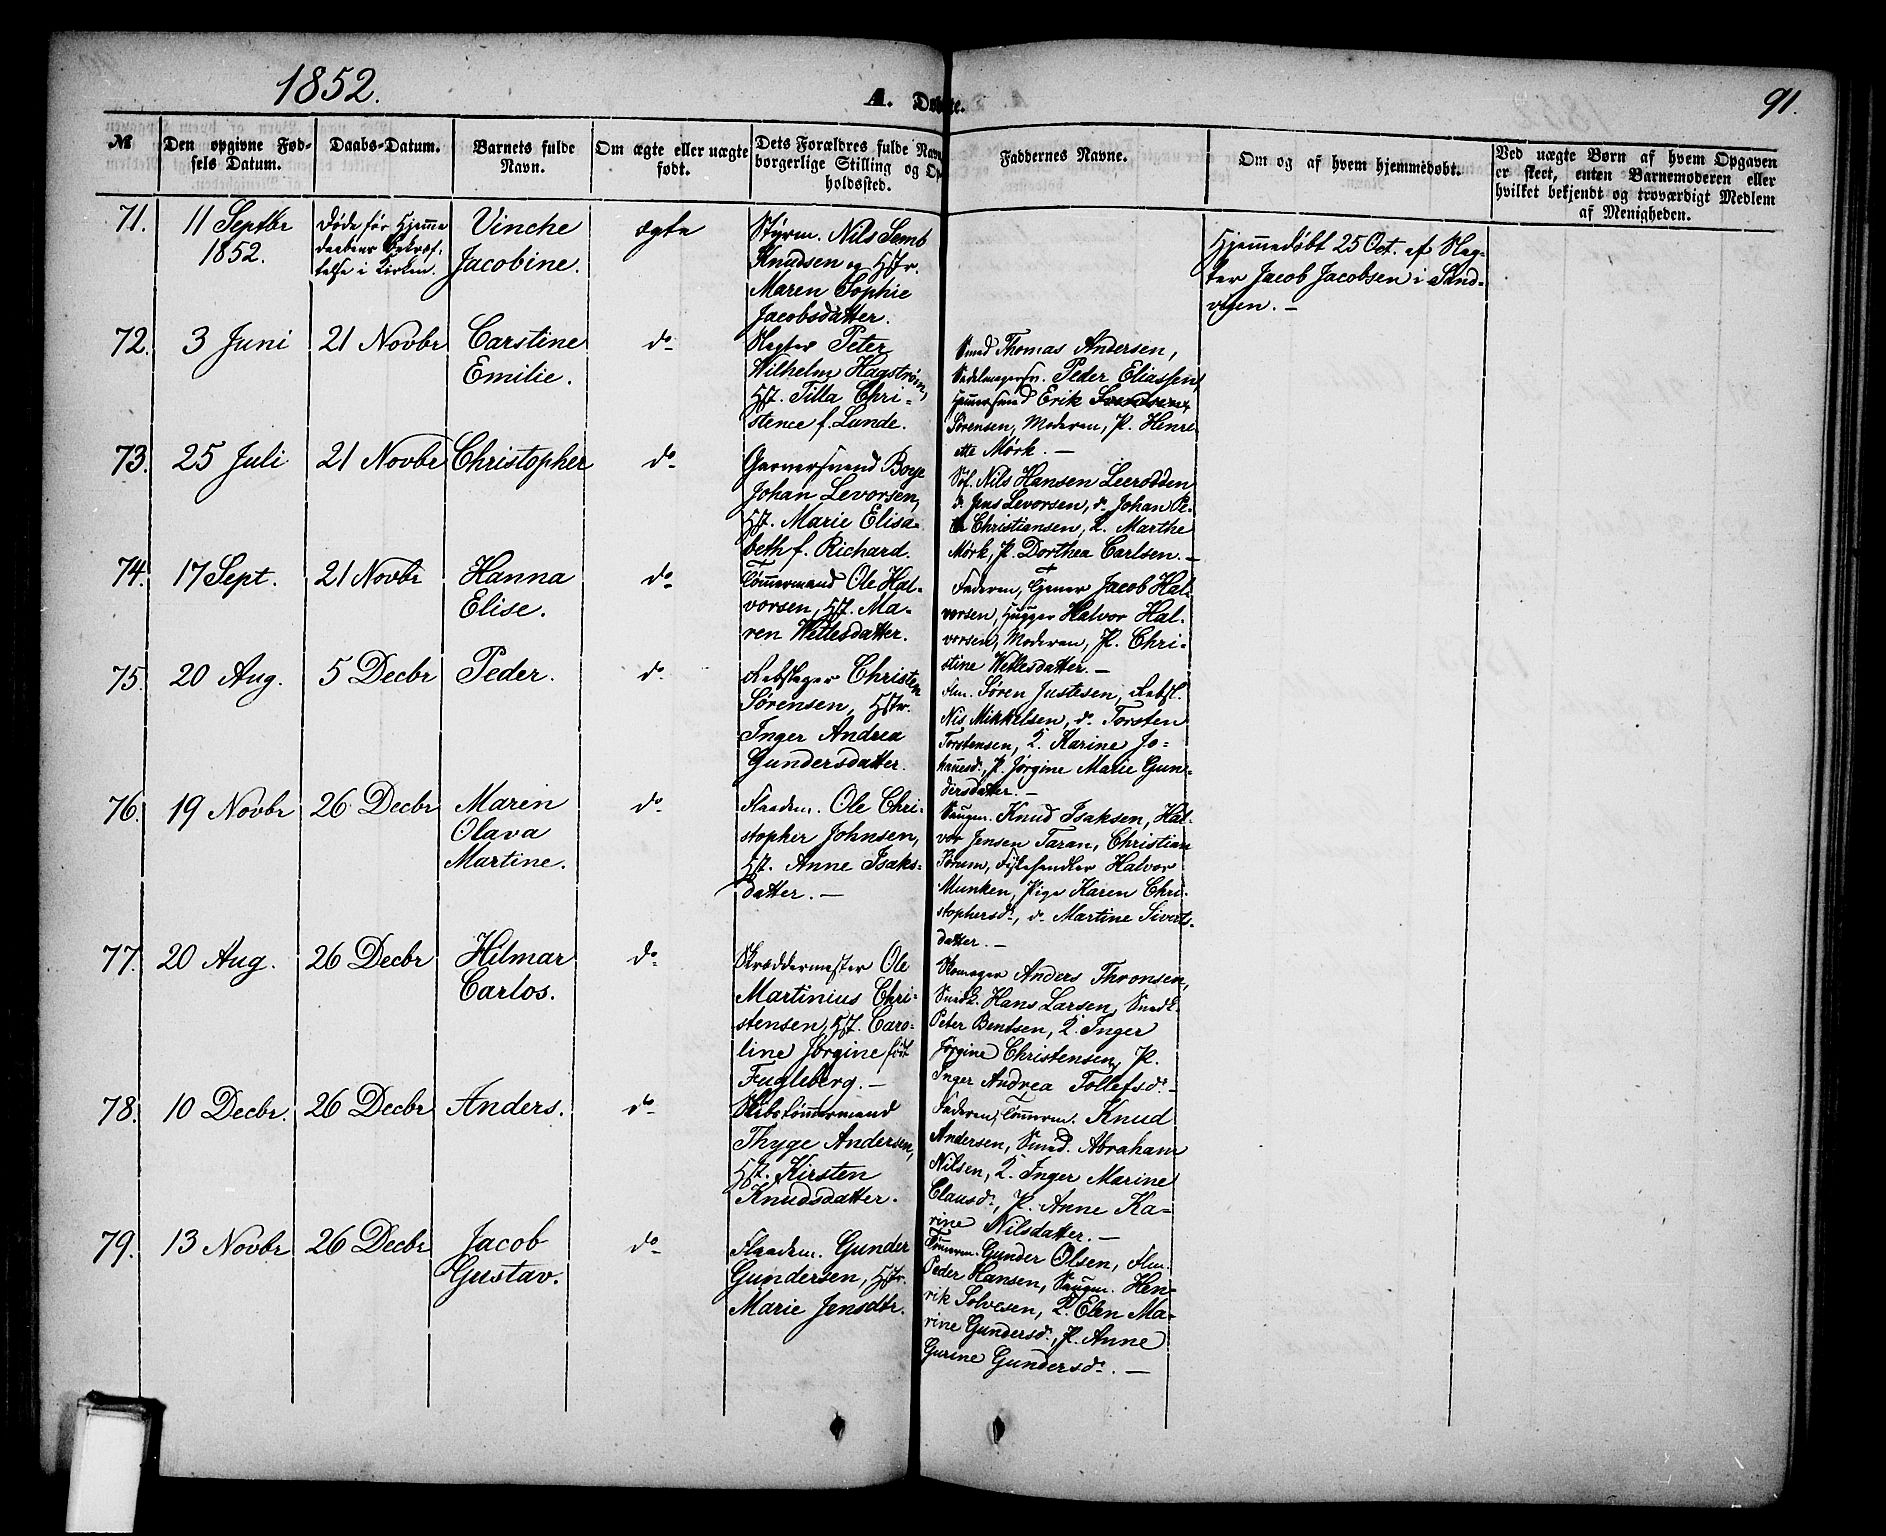 1852.
A. Døbte.
91.
№
Den opgivne Fød-
sels Datum.
Daabs-Datum.
Barnets fulde
Navn.
Om ægte eller uægte
født.
Dets Forældres fulde Navn
borgerlige Stilling og Op-
holdssted.
Faddernes Navne.
Om og af hvem hjemmedøbt.
Ved uægte Børn af hvem Opgaven
er skeet, enten Barnemoderen eller
hvilket bekjendt og troværdigt Medlem
af Menigheden.
71.
11 Septbr
1852.
Døde før Hjemme
daabens Bekræf-
telse i Kirken.
Vinche
Jacobine.
ægte
Styrm. Nils Semb
Knudsen og Hstr.
Maren Sophie
Jacobsdatter.
Hjemmedøbt 25 Oct. af Slag-
ter Jacob Jacobsen i Sand-
vigen. –
72.
3 Juni
21 Novbr
Carstine
Emilie.
do
Slagter Peter
Wilhelm Hagstrøm,
Hst. Tilla Chri-
stence f. Lunde.
Smed Thomas Andersen,
Sadelmagersv. Peder Eliassen,
Erik
Sørensen, Moderen, P. Henri-
ette Mørk. –
73.
25 Juli
21 Novbr
Christopher
do
Garversvend Boye
Johan Levorsen,
Hst. Marie Elisa-
beth f. Richard.
Søf. Nils Hansen Leerodden
do Jens Levorsen, do Johan Pe-
ter Christiansen, K. Marthe
Mørk, P. Dorthea Carlsen. –
74.
17 Sept.
21 Novbr
Hanna
Elise.
do
Tømmermand Ole Hal-
vorsen, Hst. Ma-
ren Wetlesdatter.
Faderen, Jacob Hal-
vorsen, Hugger Halvor Hal-
vorsen, Moderen, P. Chri-
stine Wetlesdatter. –
75.
20 Aug.
5 Decbr
Peder.
do
Rebslager Christen
Sørensen, Hstr.
Inger Andrea
Gundersdatter.
Flm. Søren Justesen, Rebsl.
Nis Mikkelsen, do Torsten
Torstensen, K. Karine Jo-
hannesd., P. Jørgine Marie Gun-
dersdatter. –
76.
19 Novbr
26 Decbr
Maren
Olava
Martine.
do
Flaadem. Ole Chri-
stopher Johnsen,
Hst. Anne Isaks-
datter. –
Saugm. Knud Isaksen, Hal-
vor Jensen Taran, Christian
Borum, Fiskehandler Halvor
Munken, Pige Karen Chri-
stophersd., do Martine Siverts-
datter. –
77.
20 Aug.
26 Decbr
Hilmar
Carlos.
do
Skræddermester Ole
Martinius Chri-
stensen, Hst. Caro-
line Jørgine født
Fugleberg. –
Skomager Anders Thronsen,
Snedk. Hans Larsen, Snedk.
Peter Bentsen, K. Inger
Jørgine Christensen, P.
Inger Andrea Tollefsd. –
78.
10 Decbr.
26 Decbr
Anders.
do
Skibstømmermand
Thyge Andersen,
Hst. Kirsten
Knudsdatter.
Faderen, Tømmerm. Knud
Andersen, Smed. Abraham
Nilsen, K. Inger Marine
Clausd., P. Anne Ka-
rine Nilsdatter. –
79.
13 Novbr
26 Decbr
Jacob
Gustav.
do
Flaadem. Gunder
Gundersen, Hstr.
Marie Jensdtr.
Tømmerm. Gunder Olsen, Flm.
Peder Hansen, Saugm. Hen-
rik Solvesen, K. Elen Ma-
rine Gundersd., P. Anne
Gurine Gundersd. –